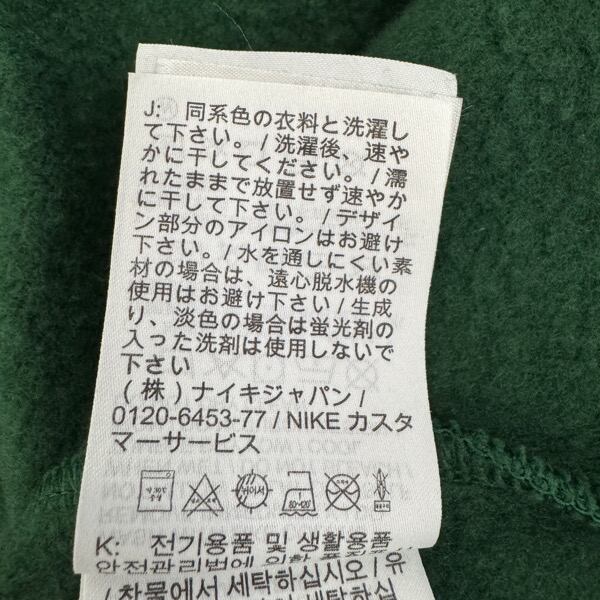 J: 同系色の衣料と洗濯し
て下さい。/ 洗濯後、速や
かに干してください。/ 濡
れたままで放置せず速やか
に干して下さい。/ デザイ
ン部分のアイロンはお避け
下さい。/ 水を通しにくい素
材の場合は、遠心脱水機の
使用はお避け下さい / 生成
り、淡色の場合は蛍光剤の
入った洗剤は使用しないで
下さい
(株) ナイキジャパン /
0120-6453-77 / NIKE カスタ
マーサービス
K: 전기용품 및 생활용품
안전관리법에 의한
/ 찬물에서 세탁하십시오 / 유